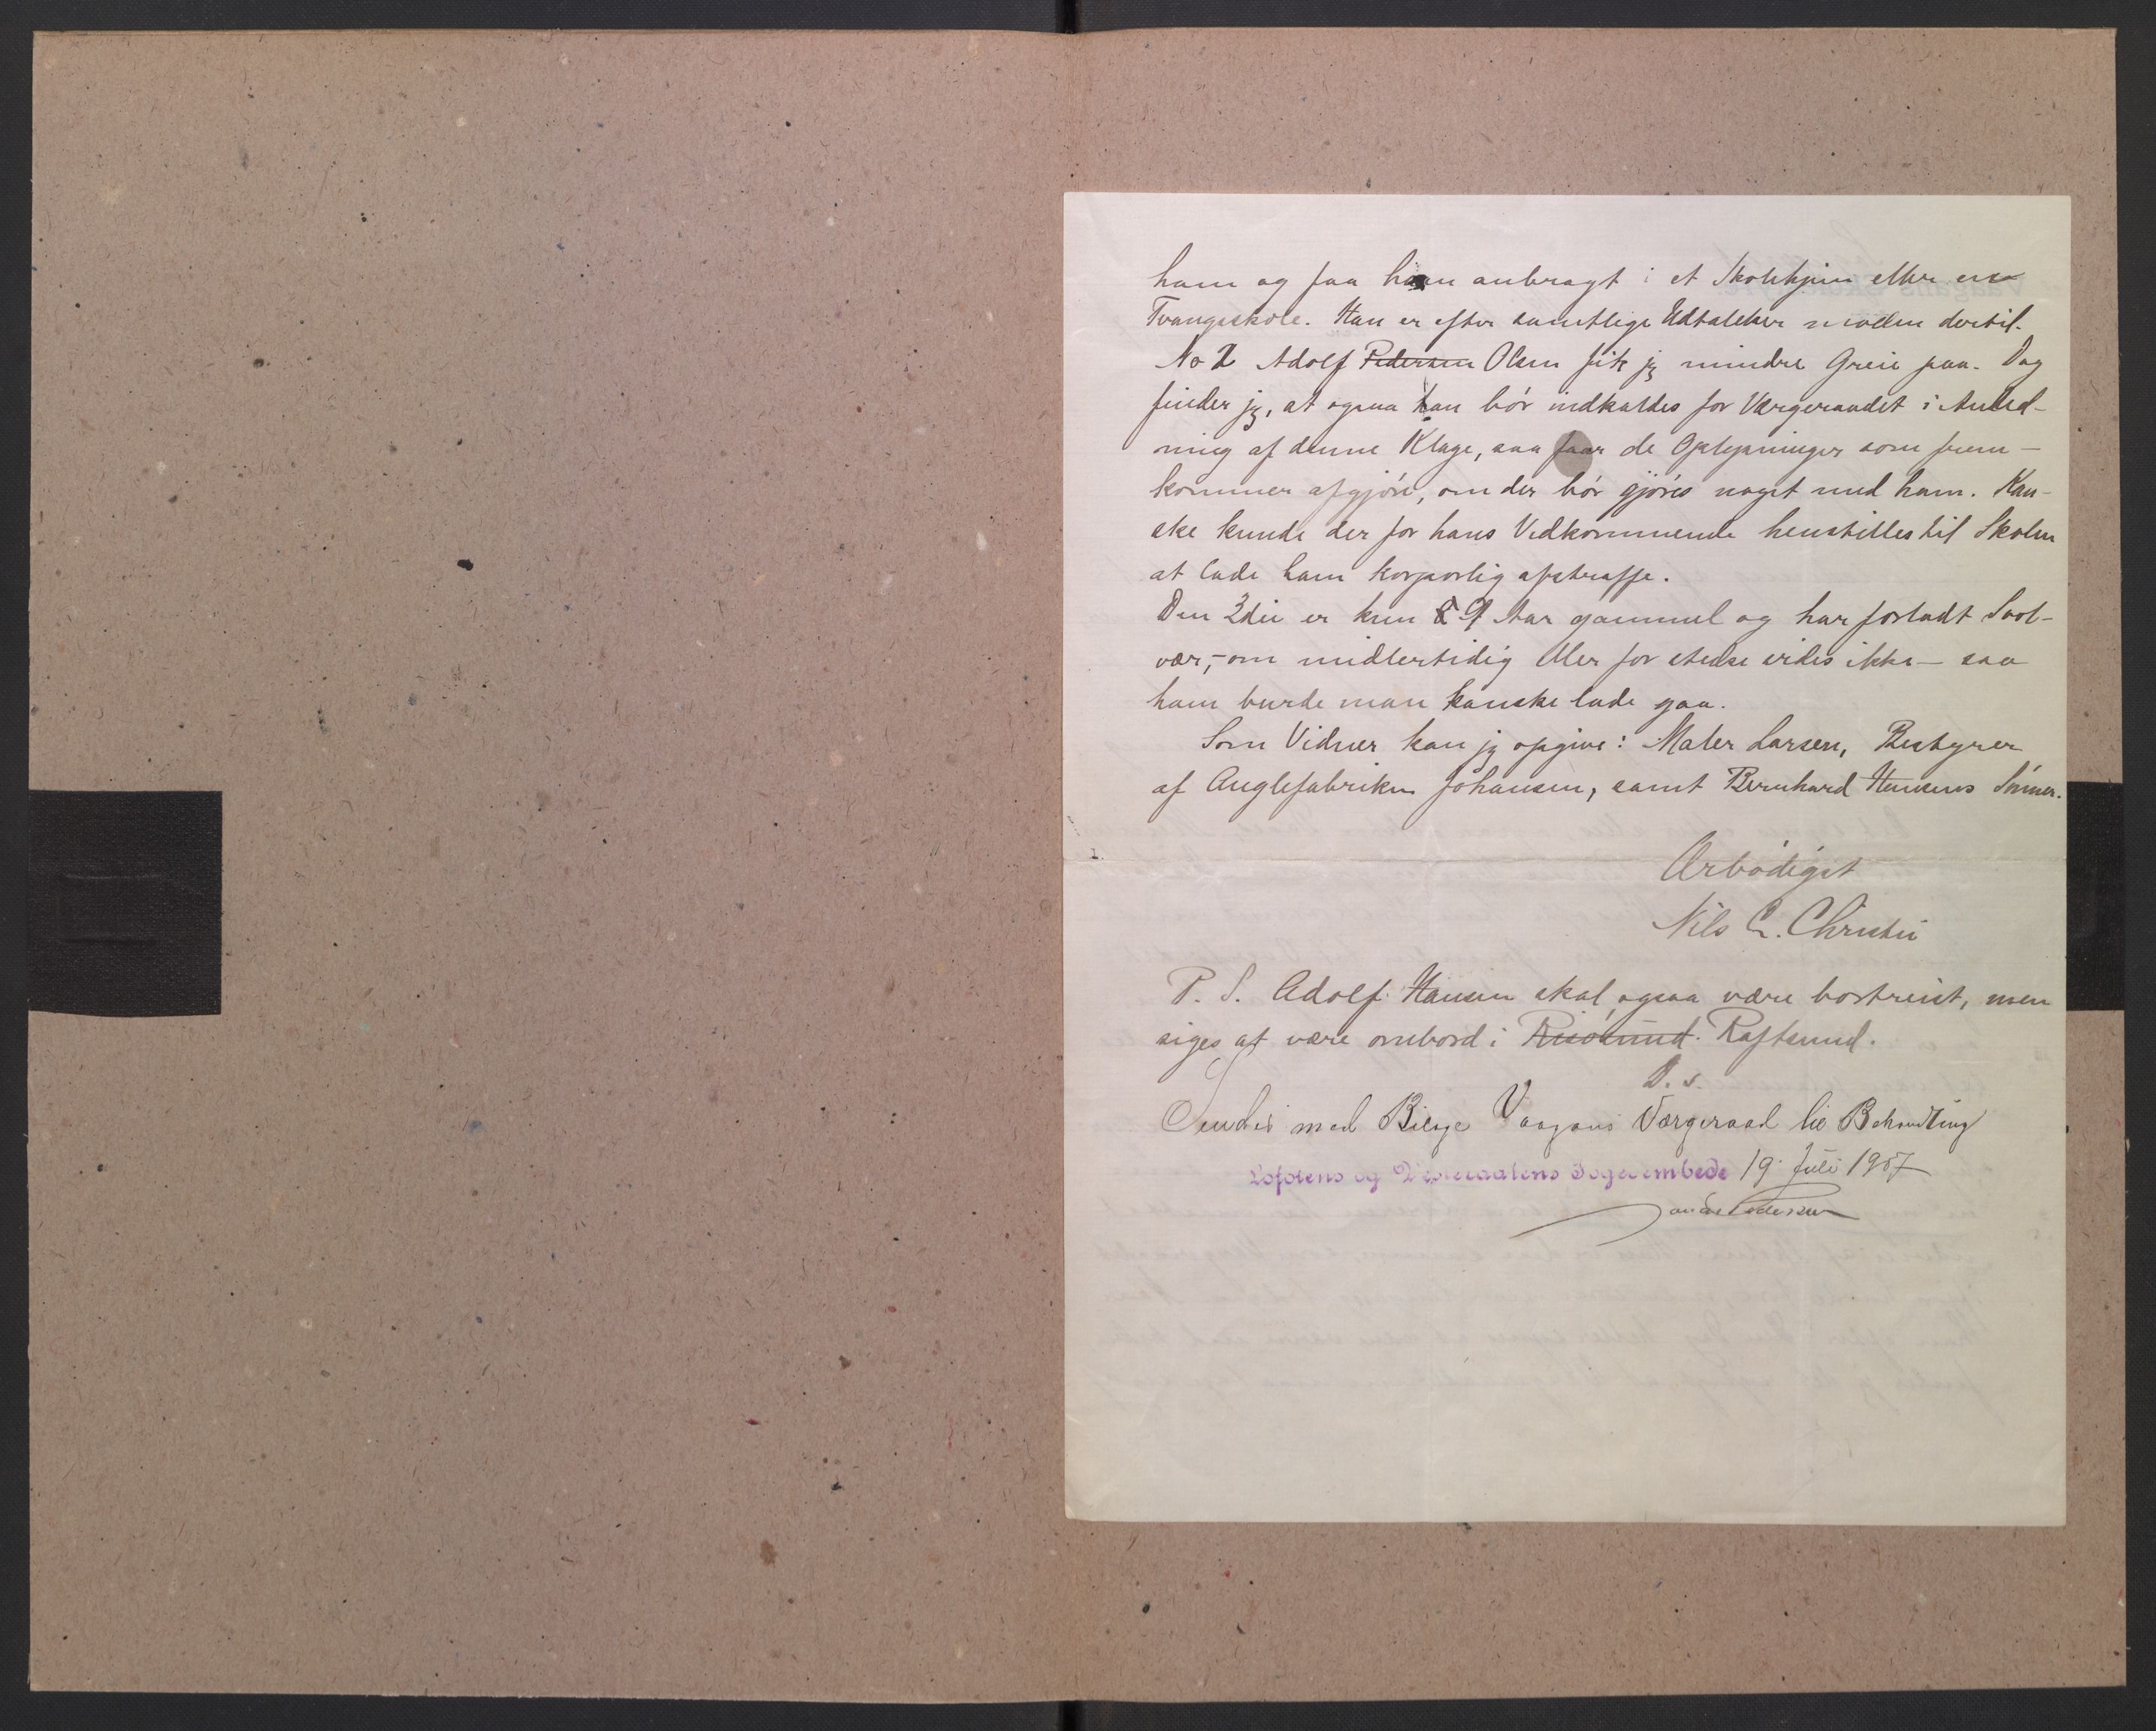 ham og faa ham anbragt i et Skolehjem eller en
Tvangsskole. Han er efter samtlige Udtalelser moden dertil.
No 2 Adolf Pedersen Olsen fik jeg mindre Greie paa. Dog
finder jeg, at ogsaa han bör indkaldes for Værgeraadet i Anled-
ning af denne Klage, saa faar de Oplysninger som frem-
kommer afgjöre, om der bör gjöres noget med ham. Kan-
ske kunde der for hans Vedkommende henstilles til Skolen
at lade ham korporlig afstraffe.
Den 3die er kun 9 Aar gammel og har forladt Svol-
vær, - om midlertidig eller for stedse vides ikke - saa
ham burde man kanske lade gaa.
Som Vidner kan jeg opgive: Maler Larsen, Bestyrer
af Anglefabriken Johansen, samt Bernhard Hansens Sönner.
Ærbödigst
Nils C. Christie
P. S. Adolf Hansen skal ogsaa være bortreist, men
siges at være ombord i Risösund. Raftsund.
D. s.
Sendes med Bilage Vaagans Værgeraad til Behandling
Lofotens og Vesteraalens Fogedembede 19 Juli 1907